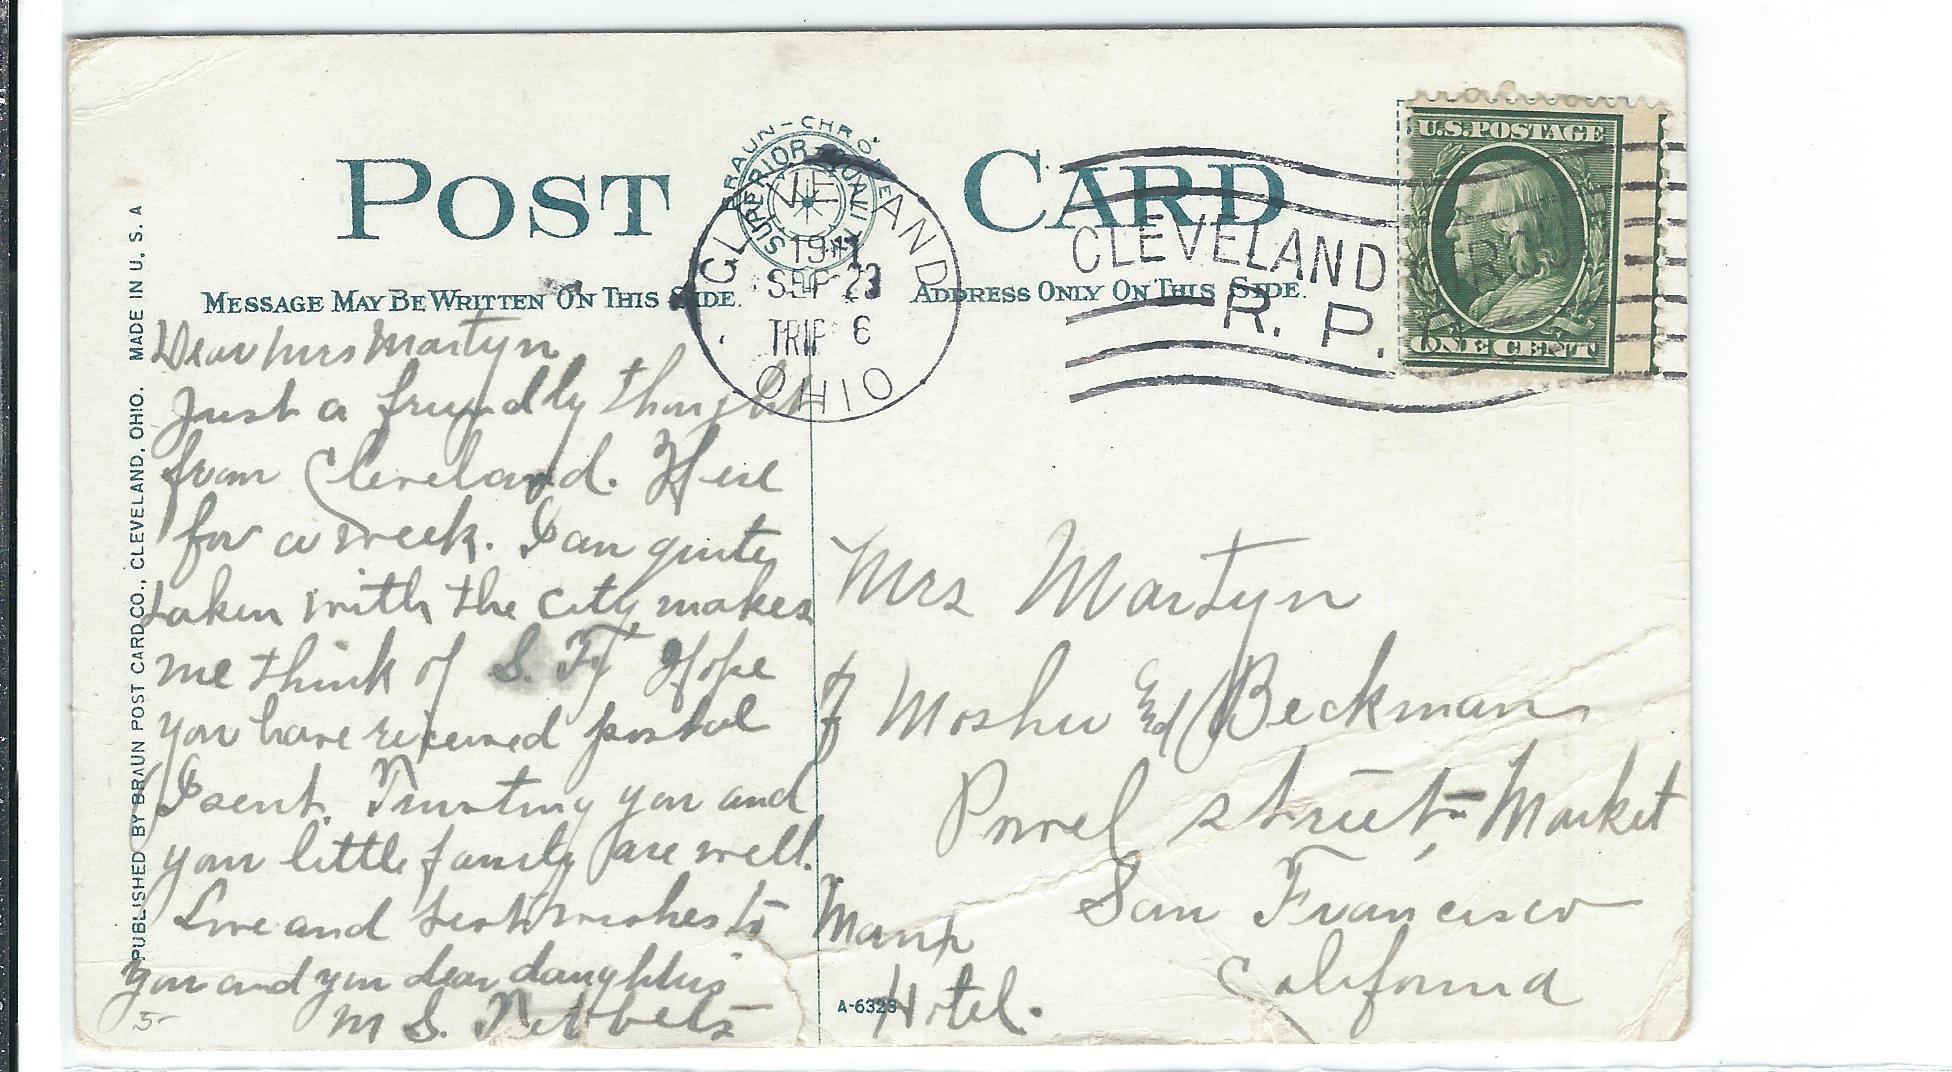 POST CARD
BRAUN-CHRO
SUPERIOR QUALITY
MESSAGE MAY BE WRITTEN ON THIS SIDE.
ADDRESS ONLY ON THIS SIDE.
CLEVELAND
1911
SEP 23
TRIP 6
OHIO
CLEVELAND
R. P.
U.S. POSTAGE
ONE CENT
PUBLISHED BY BRAUN POST CARD CO., CLEVELAND, OHIO. MADE IN U. S. A
Dear Mrs Martyn
Just a friendly thought
from Cleveland. Here
for a week. I am quite
taken with the city, makes
me think of S. F. Hope
you have received postal
I sent. Trusting you and
your little family are well.
Love and best wishes to
you and your dear daughters
M S.
5-
Mrs Martyn
Mosher and Beckman
Powel street - Market
San Francisco
California
Manx
Hotel.
A-6323